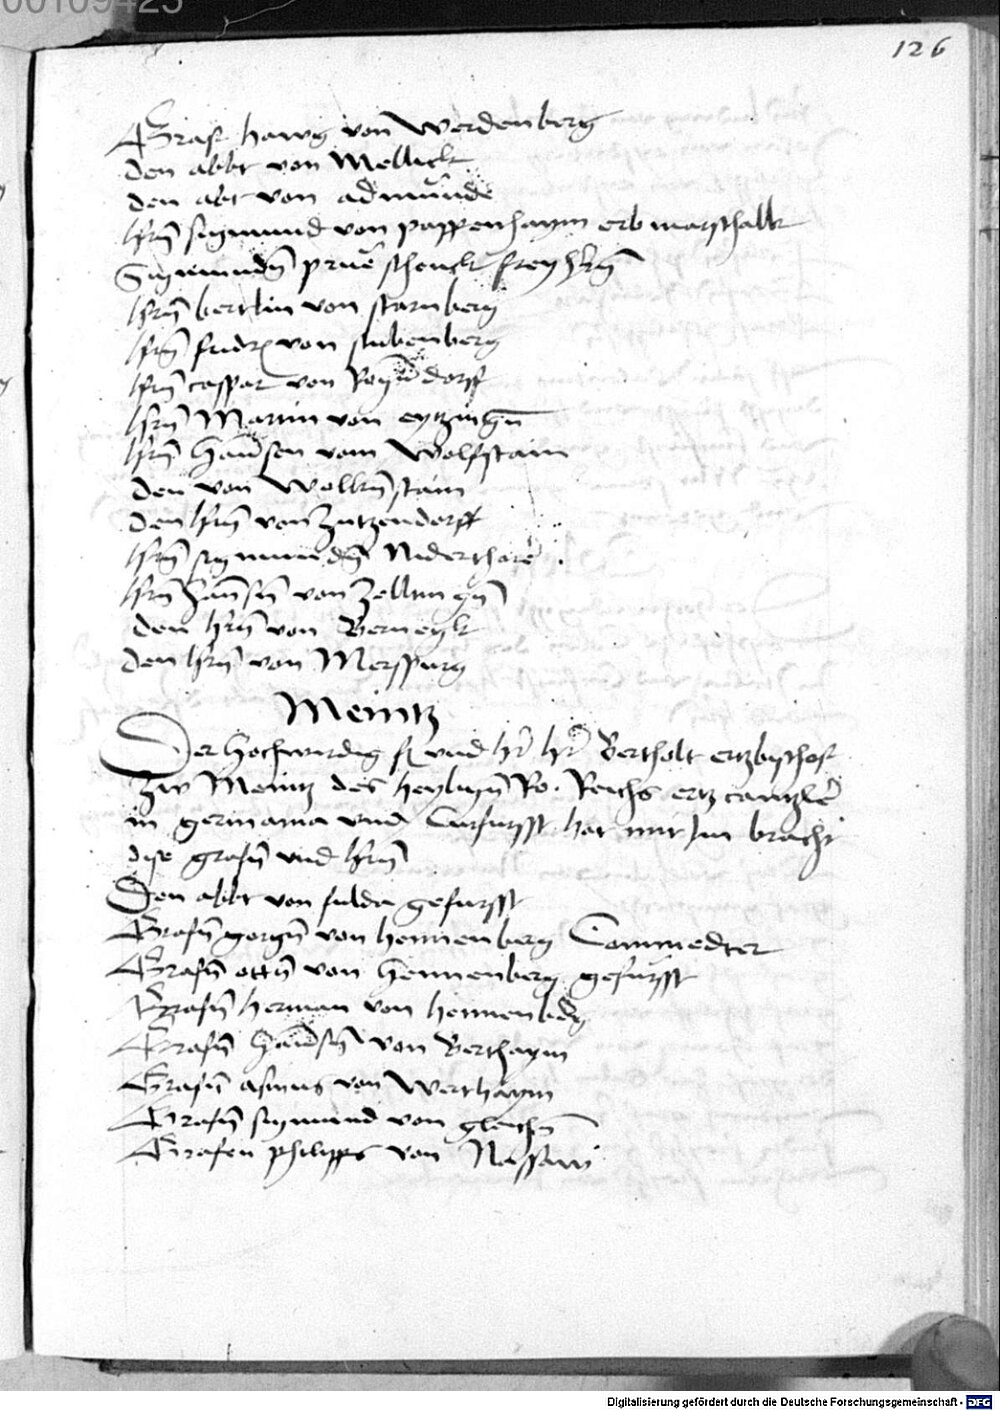 00109423
126
Graf hawg von Werdenberg
den abbt von Mellickt
den abt von admūnde
hern̄ sigmund von pappenhaym erbmarschalkt
Sigmundn̄ prue schenckt freyhern̄
hern̄ bertlin von starnberg
hern̄ fridr von stubenberg
hern̄ caspar von Rogendorff
hern̄ Martin von eytzingn̄
hern̄ Hannsen vom Wolfstain
den von Wolkn̄stain
den hern̄ von Zintzendorff
hern̄ sigmundn̄ Niderthorer
hern̄ Hannsn̄ von Zelkingn̄
den hern̄ von Berneykt
den hern̄ von Merspurg
Meintz
Der Hochwirdig f und her her Bertholt ertzbischof
zw Meintz des heylign̄ Ro. Reichs ertzcantzler
in germania vnd Curfurst hat mit Im bracht
dise grafn̄ vnd hern̄
Den abbt von fulda gefurst
Grafn̄ gorgn̄ von hennenberg Commedter
Grafn̄ ottn̄ von Hennenberg gefurst
Grafn̄ herman von hennenberg
Grafn̄ Hannsn̄ von Berthaym
Grafn̄ asmus von Werthaym
Grafn̄ sigmund von gleichn̄
Grafen philipps von Nassaw
Digitalisierung gefördert durch die Deutsche Forschungsgemeinschaft - DFG